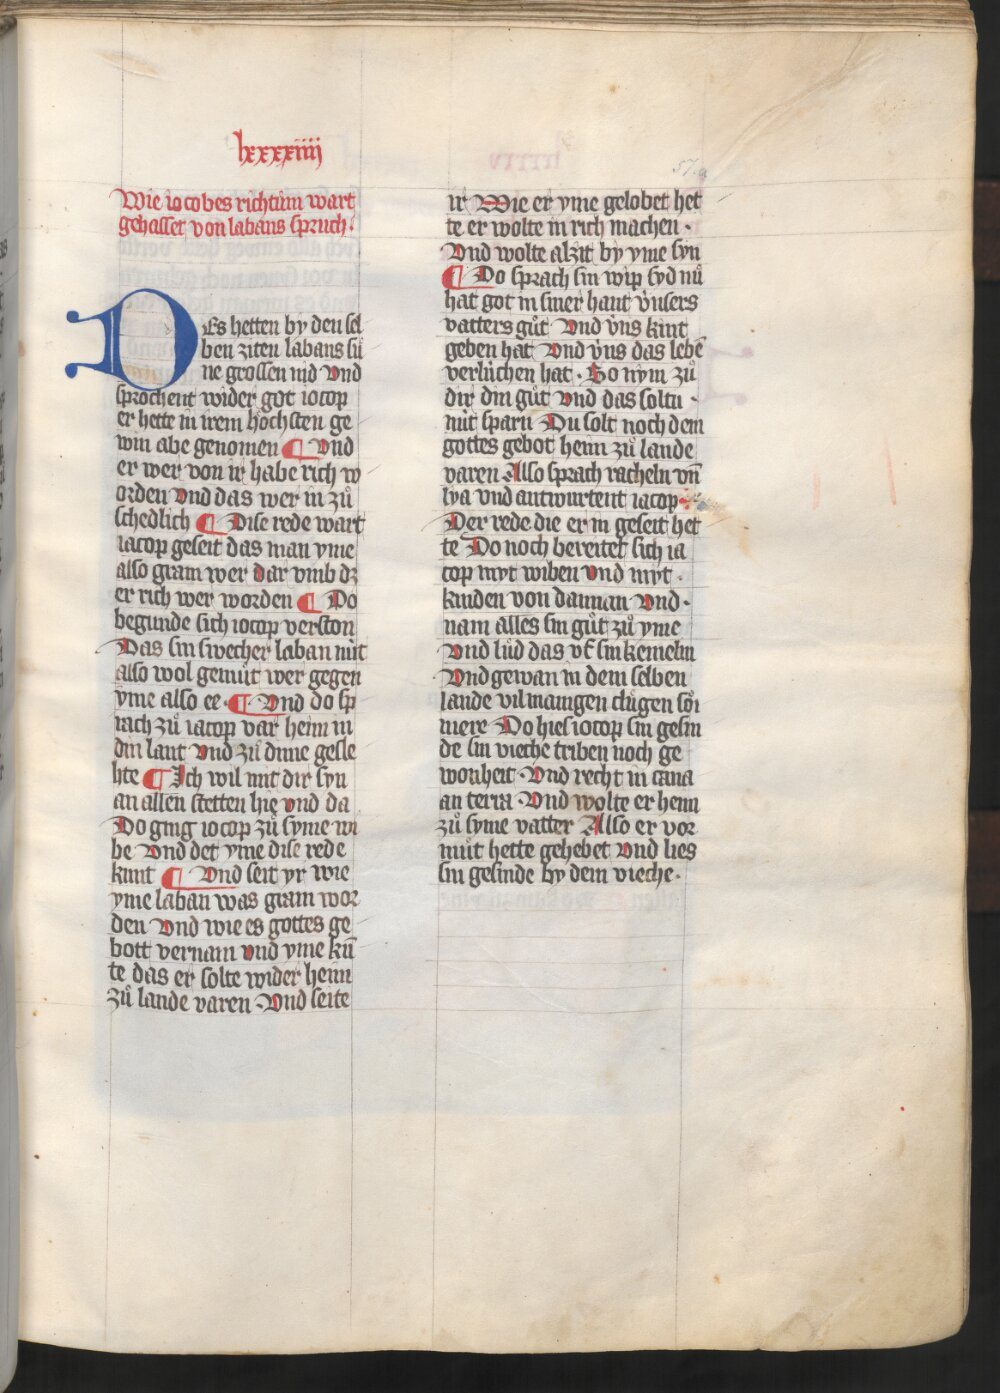 lxxxxiiij
57.a
Wie iocobes richtům wart
gehasset von labans spruch.
DEs hetten by den sel
ben ziten labans sů
ne grossen nid vnd
sprochent wider got iocop
er hette in irem höchsten ge
win abe genomen ¶ Vnd
er wer von ir habe rich w
orden vnd das wer in zů
schedlich ¶ Dise rede wart
iacop geseit das man yme
also gram wer dar vmb dz
er rich wer worden ¶ Do
begunde sich iocop verston
Das sin swecher laban nüt
also wol gemüt wer gegen
yme also ee. ¶ Vnd do sp
rach zů iacop var heim in
din lant vnd zů dinne gesle
hte ¶ Ich wil mit dir syn
an allen stetten hie vnd da
Do ging iocop zů syme wi
be Vnd det yme dise rede
kunt ¶ Vnd seit yr wie
yme laban was gram wor
den Vnd wie es gottes ge
bott vernam vnd yme kū
te das er solte wider heim
zů lande varen Vnd seite
ir Wie er yme gelobet het
te er wolte in rich machen.
Vnd wolte alzit by yme syn
¶ Do sprach sin wip syd nů
hat got in siner hant vnsers
vatters gůt Vnd vns kint
geben hat Vnd vns das lebē
verlüchen hat. So nym zů
dir din gůt vnd das soltu.
nüt sparn Du solt noch dem
gottes gebot heim zů lande
varen Also sprach racheln vn̄
lya vnd antwurtent iacop.
Der rede die er in geseit het
te Do noch bereitet sich ia
cop myt wiben vnd myt.
kinden von dannan Vnd.
nam alles sin gůt zů yme
Vnd lůd das vf sin kemelin
Vnd gewan in dem selben
lande vil manigen clůgen söi
mere Do hies iocop sin gesin
de sin vieche triben noch ge
wonheit Vnd recht in cana
an terra. Vnd wolte er heim
zů syme vatter Also er vor
můt hette gehebet Vnd lies
sin gesinde by dem vieche.